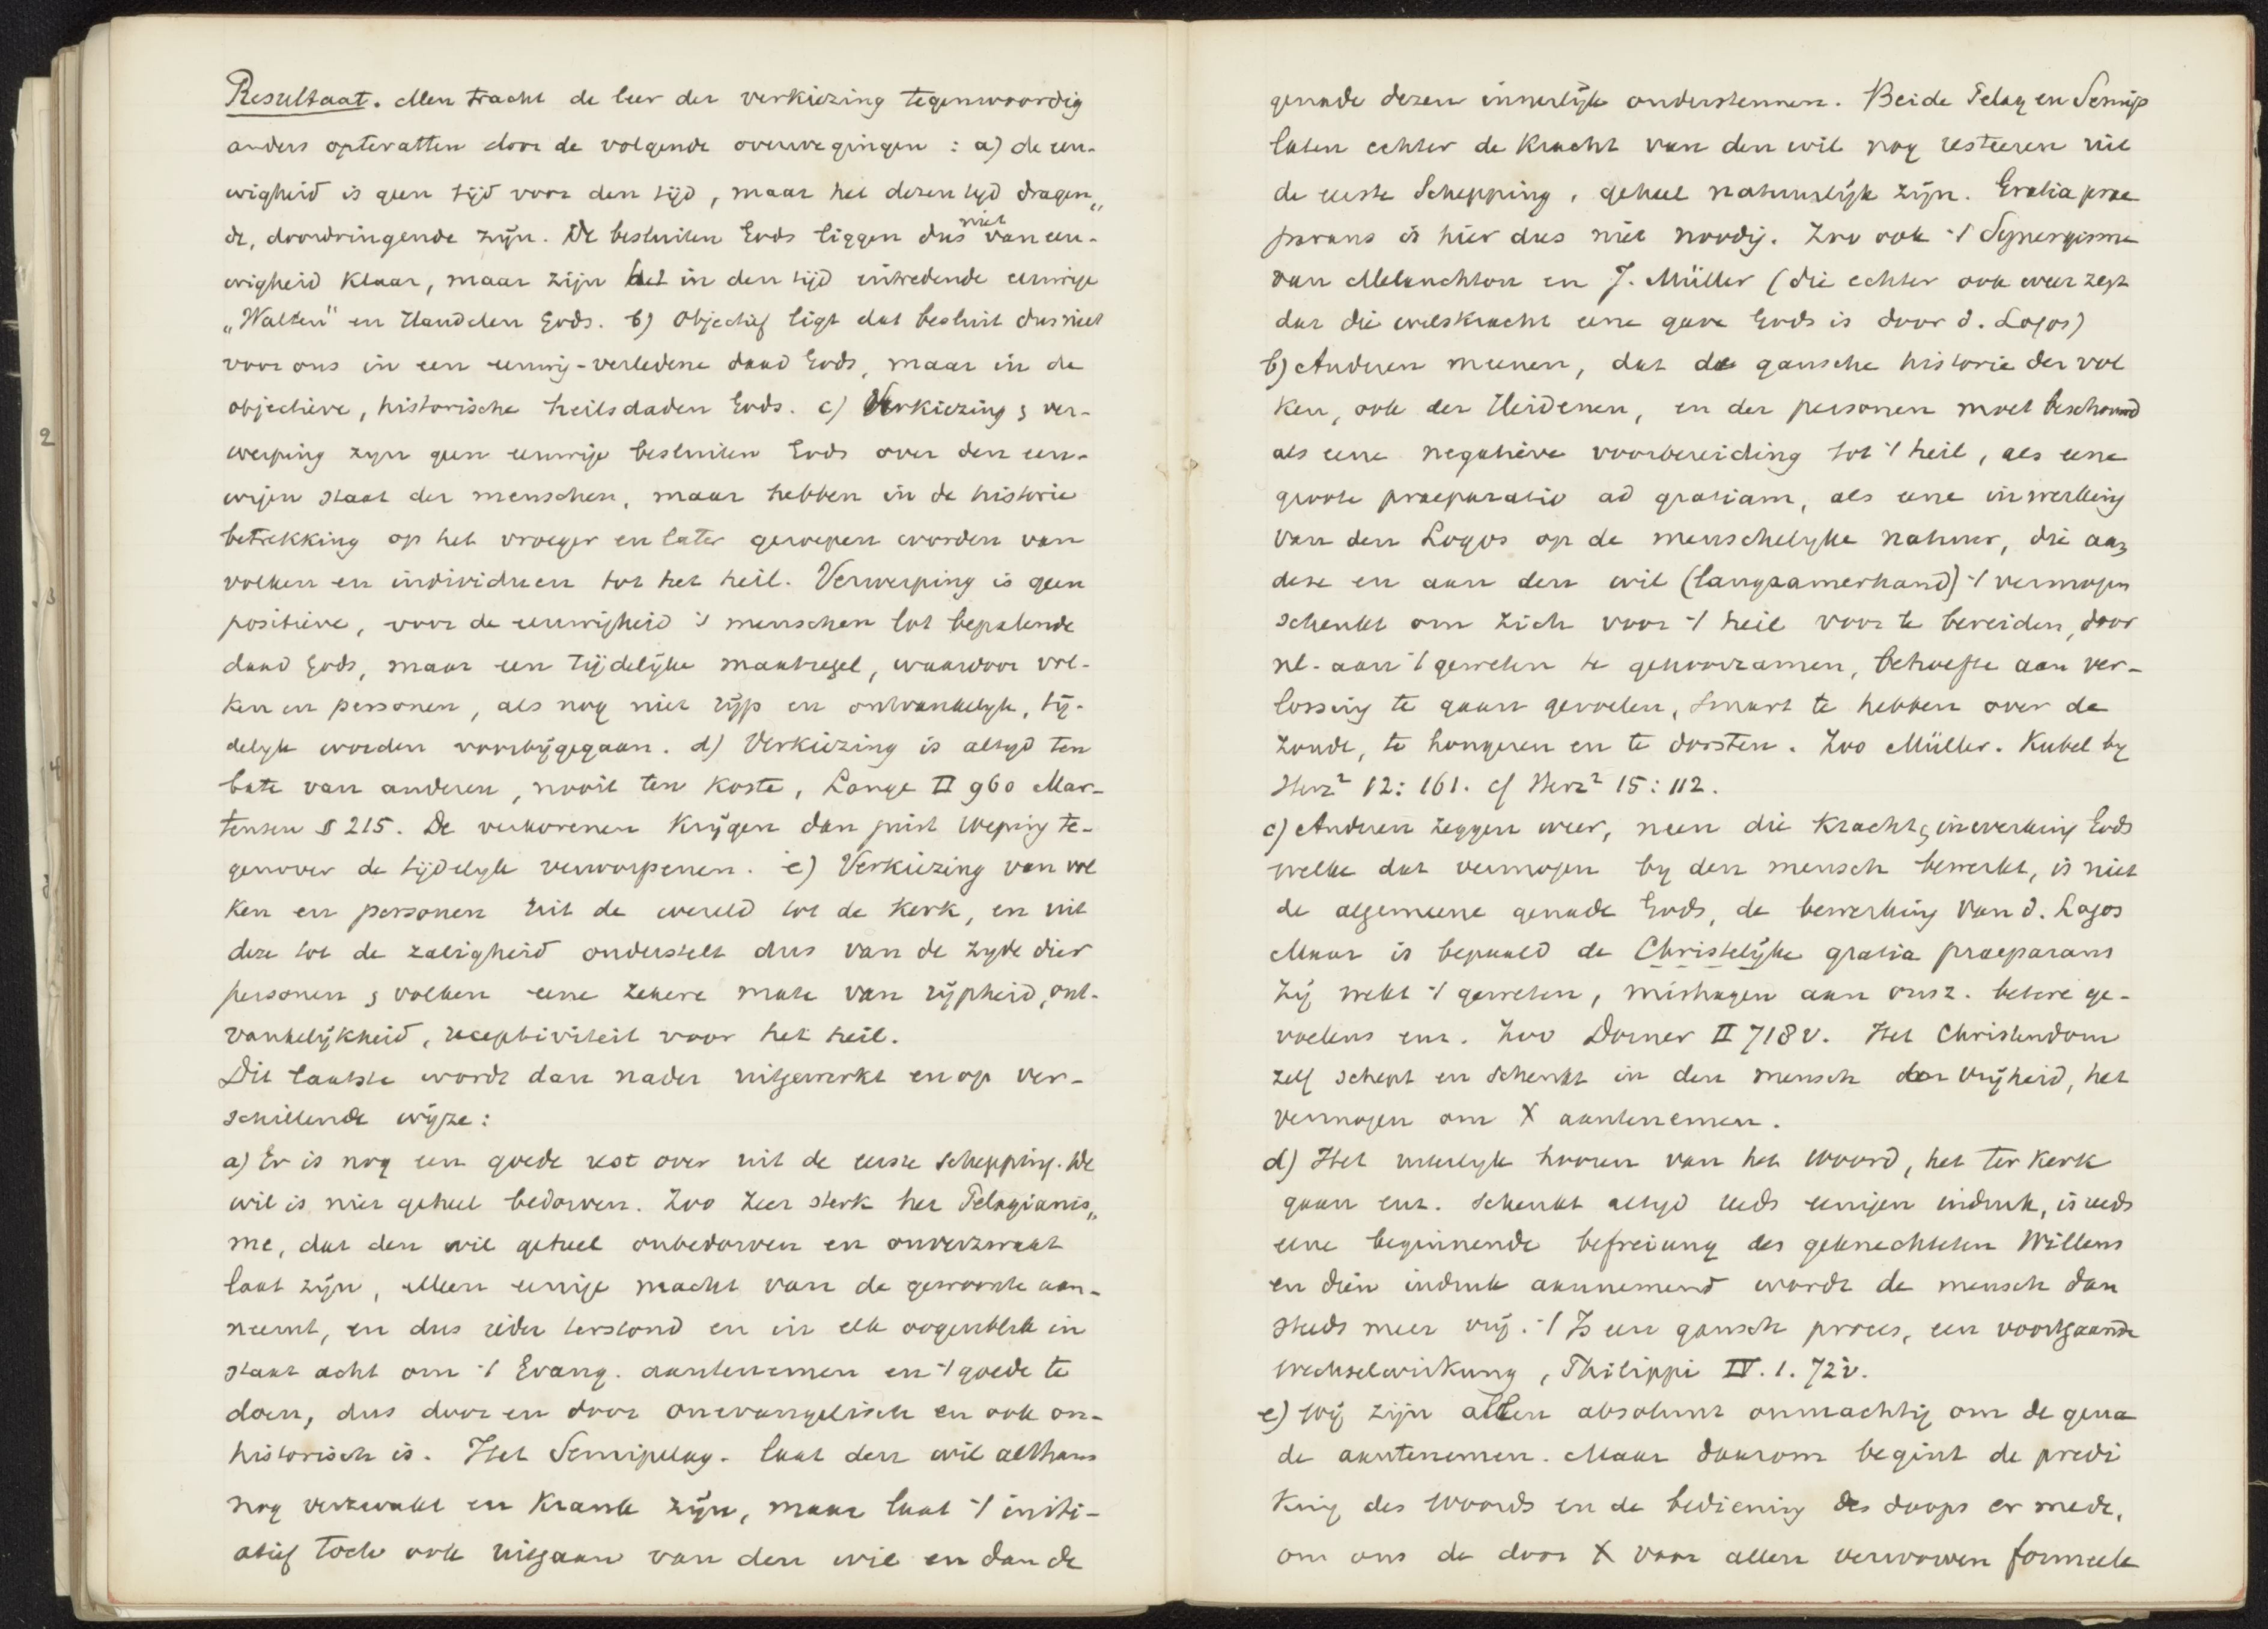 Resultaat. Men tracht de leer der verkiezing tegenwoordig
anders optevatten door de volgende overwegingen : a) de eeu-
wigheid is geen tijd voor den tijd, maar het dezen tyd dragen„
de, doordringende zijn. De besluiten Gods liggen dus niet van eeu-
wigheid klaar, maar zijn het in den tijd intredende eeuwige
„Walten" en Handelen Gods. b) objectief ligt dat besluit dus niet
voor ons in een eeuwig-verledene daad Gods, maar in de
objectieve, historische heilsdaden Gods. c) Verkiezing & ver-
werping zyn geen eeuwige besluiten Gods over den eeu-
wigen staat der menschen, maar hebben in de historie
betrekking op het vroeger en later geroepen worden van
volken en individuen tot het heil. Verwerping is geen
positieve, voor de eeuwigheid 's menschen lot bepalende
daad Gods, maar een tijdelijke maatregel, waardoor vol-
ken en personen, als nog niet rijp en ontvankelyk, tij-
delyk worden voorbijgegaan. d) Verkiezing is altyd ten
bate van anderen, nooit ten koste, Lange II 960 Mar-
tensen § 215. De verkorenen krijgen dan juist roeping te-
genover de tijdelyk verworpenen. e) Verkiezing van vol
ken en personen uit de wereld tot de kerk, en uit
deze tot de zaligheid onderstelt dus van de zyde dier
personen & volken eene zekere mate van rijpheid, ont-
vankelijkheid, receptiviteit voor het heil.
Dit laatste wordt dan nader uitgewerkt en op ver-
schillende wijze:
a) Er is nog een goede rest over uit de eerste schepping. De
wil is niet geheel bedorven. Zoo zeer sterk het Pelagianis„
me, dat den wil geheel onbedorven en onverzwakt
laat zijn, alleen eenige macht van de gewoonte aan-
neemt, en dus ieder terstond en in elk oogenblik in
staat acht om 't Evang. aantenemen en 't goede te
doen, dus door en door onevangelisch en ook on-
historisch is. Het Semipelag. laat den wil althans
nog verzwakt en krank zijn, maar laat 't initi-
atief toch ook uitgaan van den wil en dan de
genade dezen innerlijk ondersteunen. Beide Pelag en Semip
laten echter de kracht van den wil nog resteeren uit
de eerste Schepping, geheel natuurlijk zijn. Gratia prae
parans is hier dus niet noodig. Zoo ook 't Synergisme
van Melanchton en J. Müller (die echter ook weer zegt
dat die wilskracht eene gave Gods is door d. Logos)
b) Anderen meenen, dat de gansche historie der vol
ken, ook der Heidenen, en der personen moet beschouwd
als eene negatieve voorbereiding tot 't heil, als eene
groote praeparatio ad gratiam, als eene inwerking
van den Logos op de menschelyke natuur, die aan
deze en aan den wil (langzamerhand) 't vermogen
schenkt om zich voor 't heil voor te bereiden, door
nl. aan 't geweten te gehoorzamen, behoefte aan ver-
lossing te gaan gevoelen, smart te hebben over de
zonde, te hongeren en te dorsten. Zoo Müller. Kubel by
Herz² 12: 161. cf Herz² 15: 112.
c) Anderen zeggen weer, neen die kracht & inwerking Gods
welke dat vermogen by den mensch bewerkt, is niet
de algemeene genade Gods, de bewerking van d. Logos
Maar is bepaald de Christelijke gratia praeparans
Zij wekt 't geweten, mishagen aan onsz. betere ge-
voelens enz. Zoo Dorner II 718 v. Het Christendom
zelf schept en schenkt in den mensch den vrijheid, het
vermogen om X aantenemen.
d) Het uiterlyk hooren van het woord, het ter kerk
gaan enz. schenkt altyd reeds eenigen indruk, is reeds
eene beginnende befreiung des geknechteten Willens
en dien indruk aannemend wordt de mensch dan
steeds meer vrij. 't Is een gansch proces, een voortgaande
wechselwirkung, Philippi IV. 1. 72 v.
e) Wij zijn allen absoluut onmachtig om de gena
de aantenemen. Maar daarom begint de predi
king des Woords en de bediening des doops er mede,
om ons de door X voor allen verworven formeele